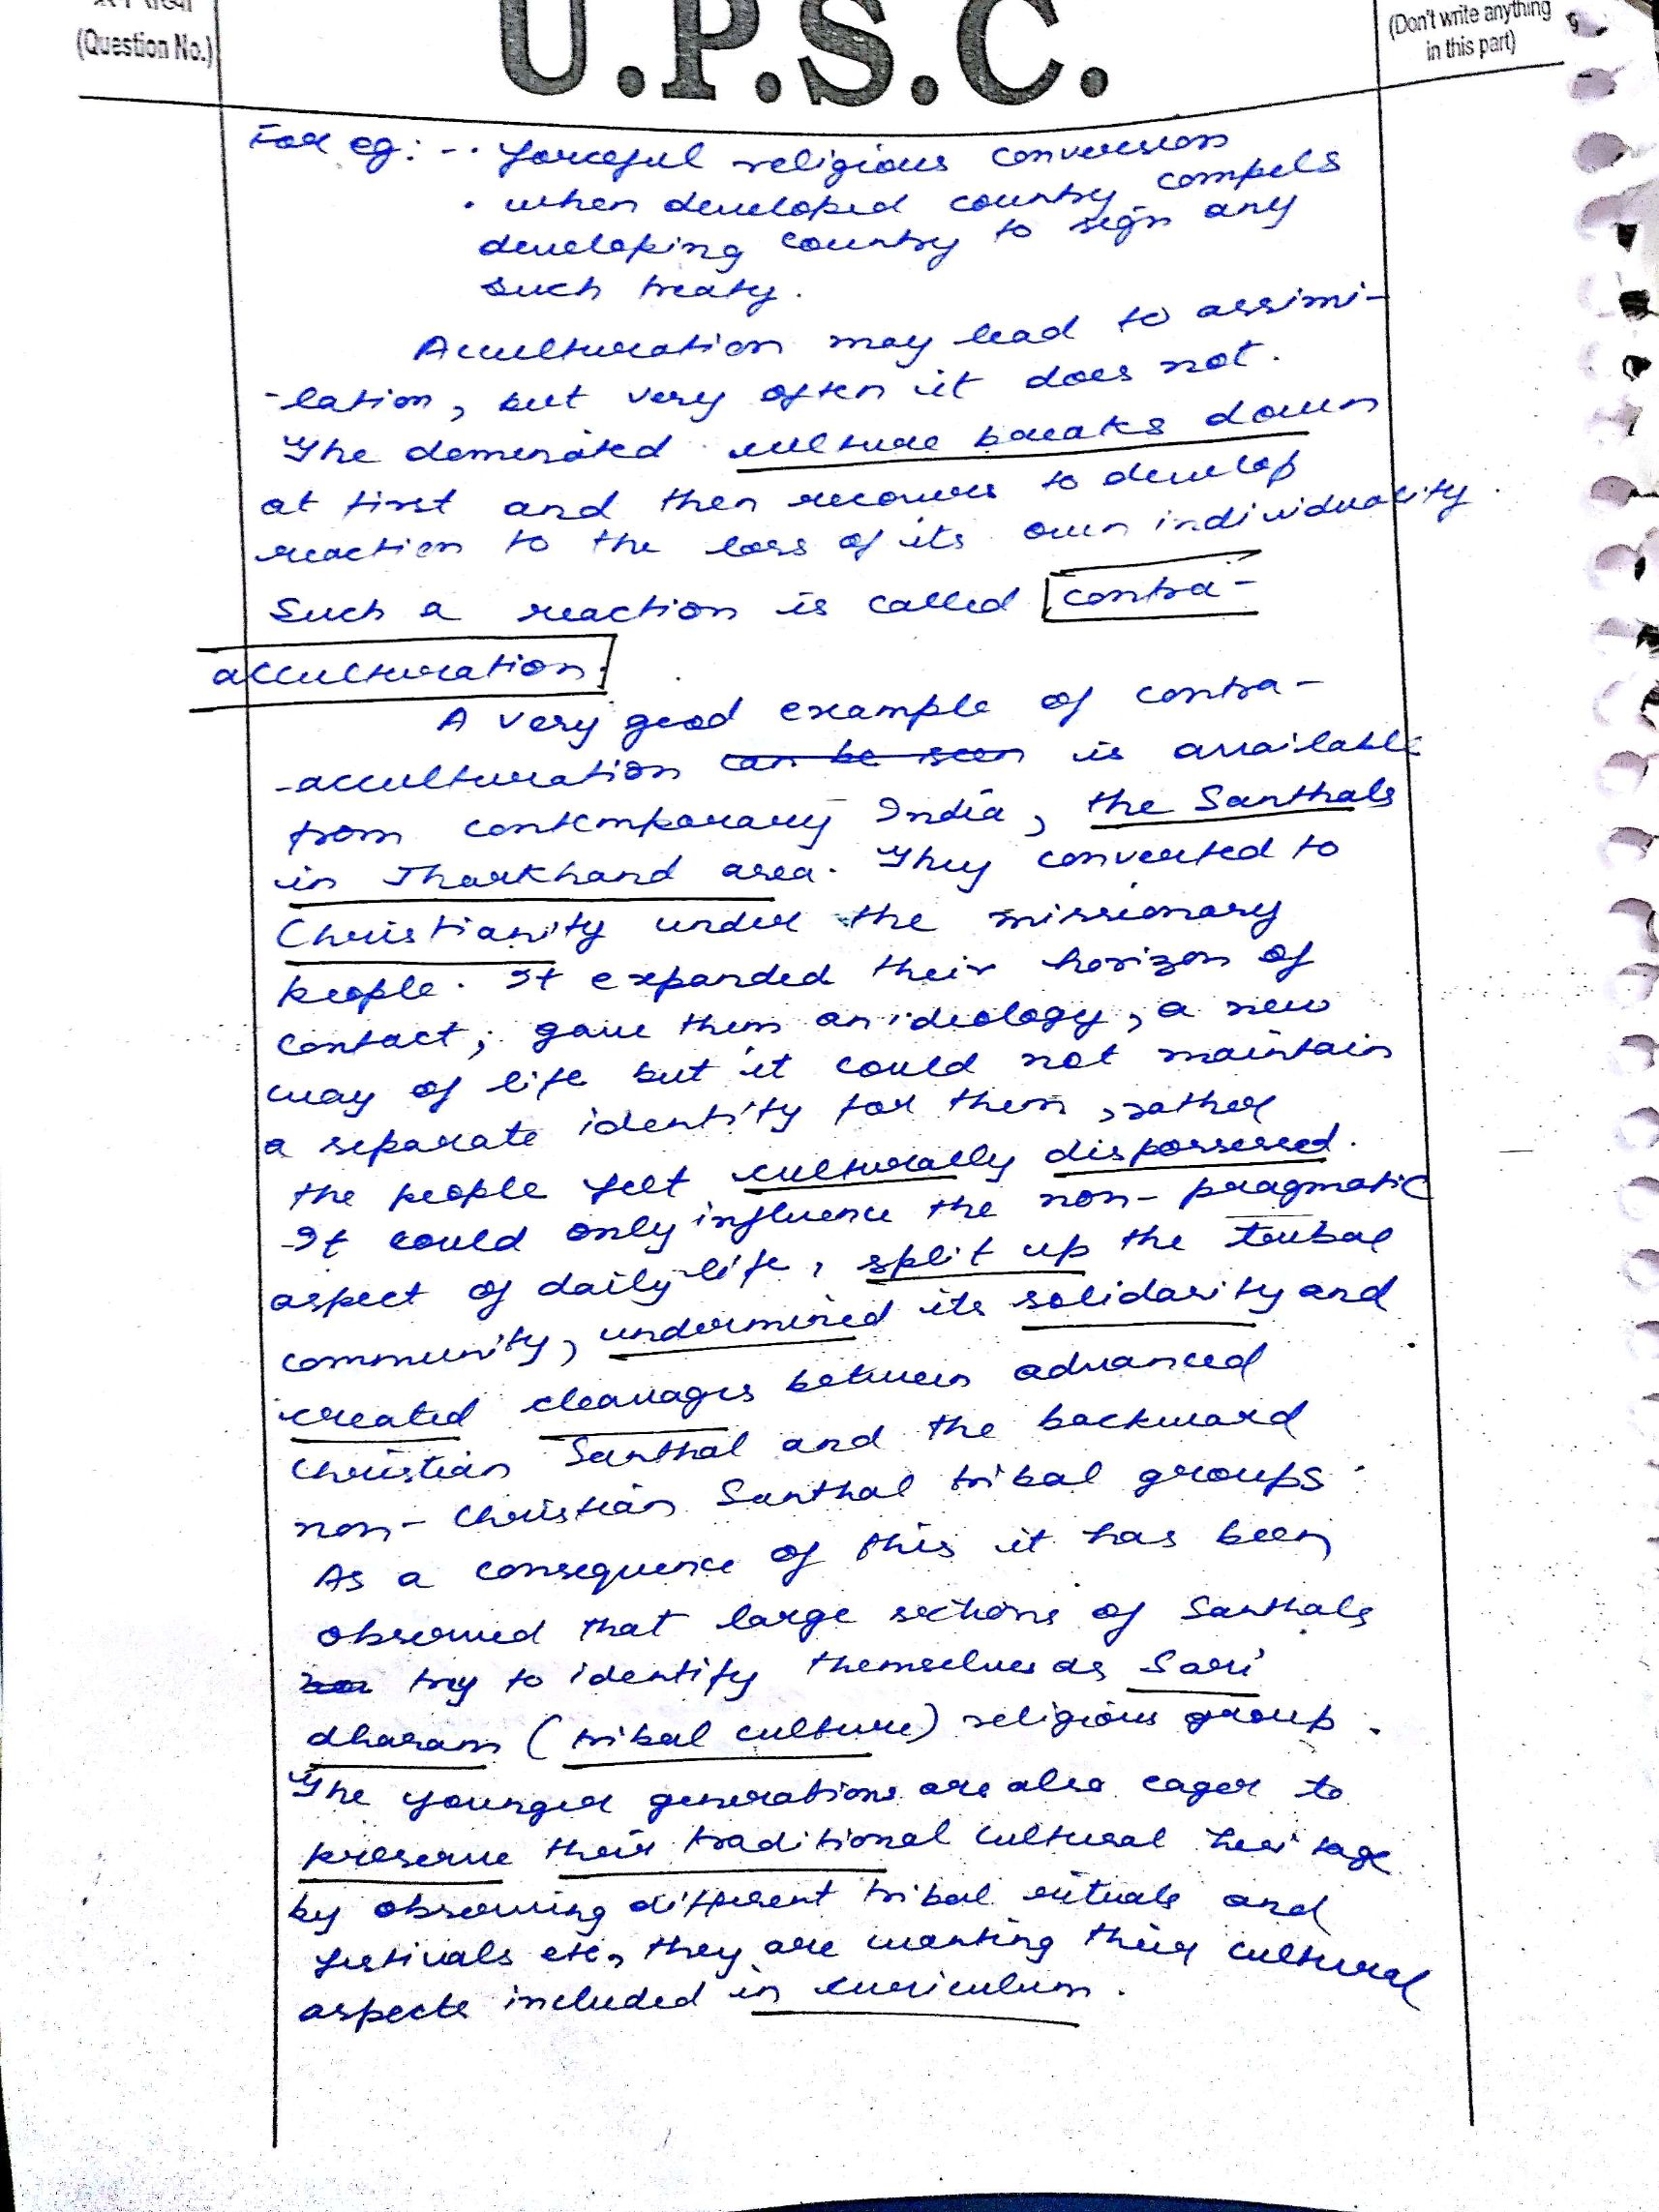 (Question No.)
U.P.S.C.
(Don't write anything
in this part)
For eg: - . forceful religious conversion
. when developed country compels
developing country to sign any
such treaty.
Acculturation may lead to assimi-
-lation, but very often it does not.
The dominated culture breaks down
at first and then recovers to develop
reaction to the loss of its own individuality.
Such a reaction is called contra-
acculturation.
A very good example of contra-
-acculturation can be seen is available
from contemporary India, the Santhals
in Jharkhand area. They converted to
Christianity under the missionary
people. It expanded their horizon of
contact; gave them an ideology, a new
way of life but it could not maintain
a separate identity for them, rather
the people felt culturally dispossessed.
It could only influence the non-pragmatic
aspect of daily life, split up the tribal
community, undermined its solidarity and
created cleavages between advanced
Christian Santhal and the backward
non-Christian Santhal tribal groups.
As a consequence of this it has been
observed that large sections of Santhals
try to identify themselves as Sari
dharam (tribal culture) religious group.
The younger generations are also eager to
preserve their traditional cultural heritage
by observing different tribal rituals and
festivals etc, they are wanting their cultural
aspects included in curriculum.